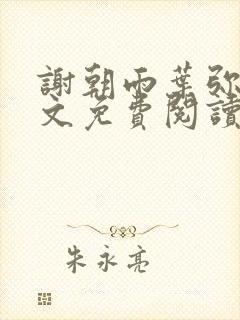 謝朝雨葉弥
文免費閱讀
朱永亮